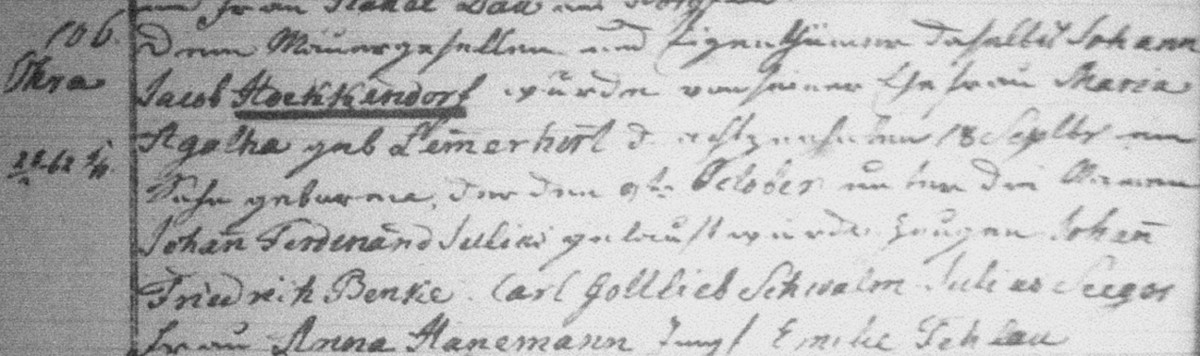 Frau
106. Dem Mauergesellen und Eigenthümer daselbst Johann
Ohra Jacob Hoekkendorf wurde von seiner Ehefrau Maria
Agatha geb d. achtzehnten 18 Septbr ein
Sohn geboren, der den 9te October unter den Namen
Johan̅ Ferdinand Julius getauft wurde. Zeugen Johan̅
Friedrich Benke. Carl Gottlieb Schwalm Julius Seeger
Frau Anna Hanemann Jungf Emilie